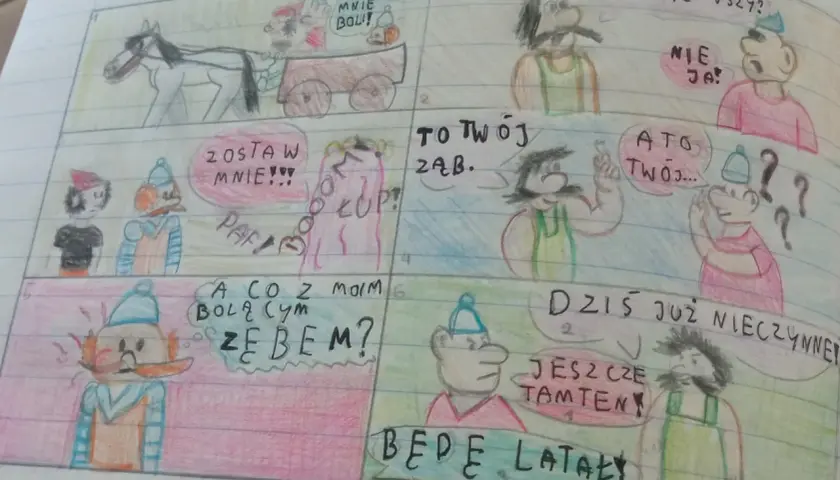 1
MNIE
BOLI!
2
NIE
JA!
ZOSTAW
MNIE!!!
PAF!
BOOOM
ŁUP!
4
TO TWÓJ
ZĄB.
A TO
TWÓJ...
???
5
A CO Z MOIM
BOLĄCYM
ZĘBEM?
6
JESZCZE
TAMTEN!
1
DZIŚ JUŻ NIECZYNNE!
2
BĘDĘ LATAŁ!